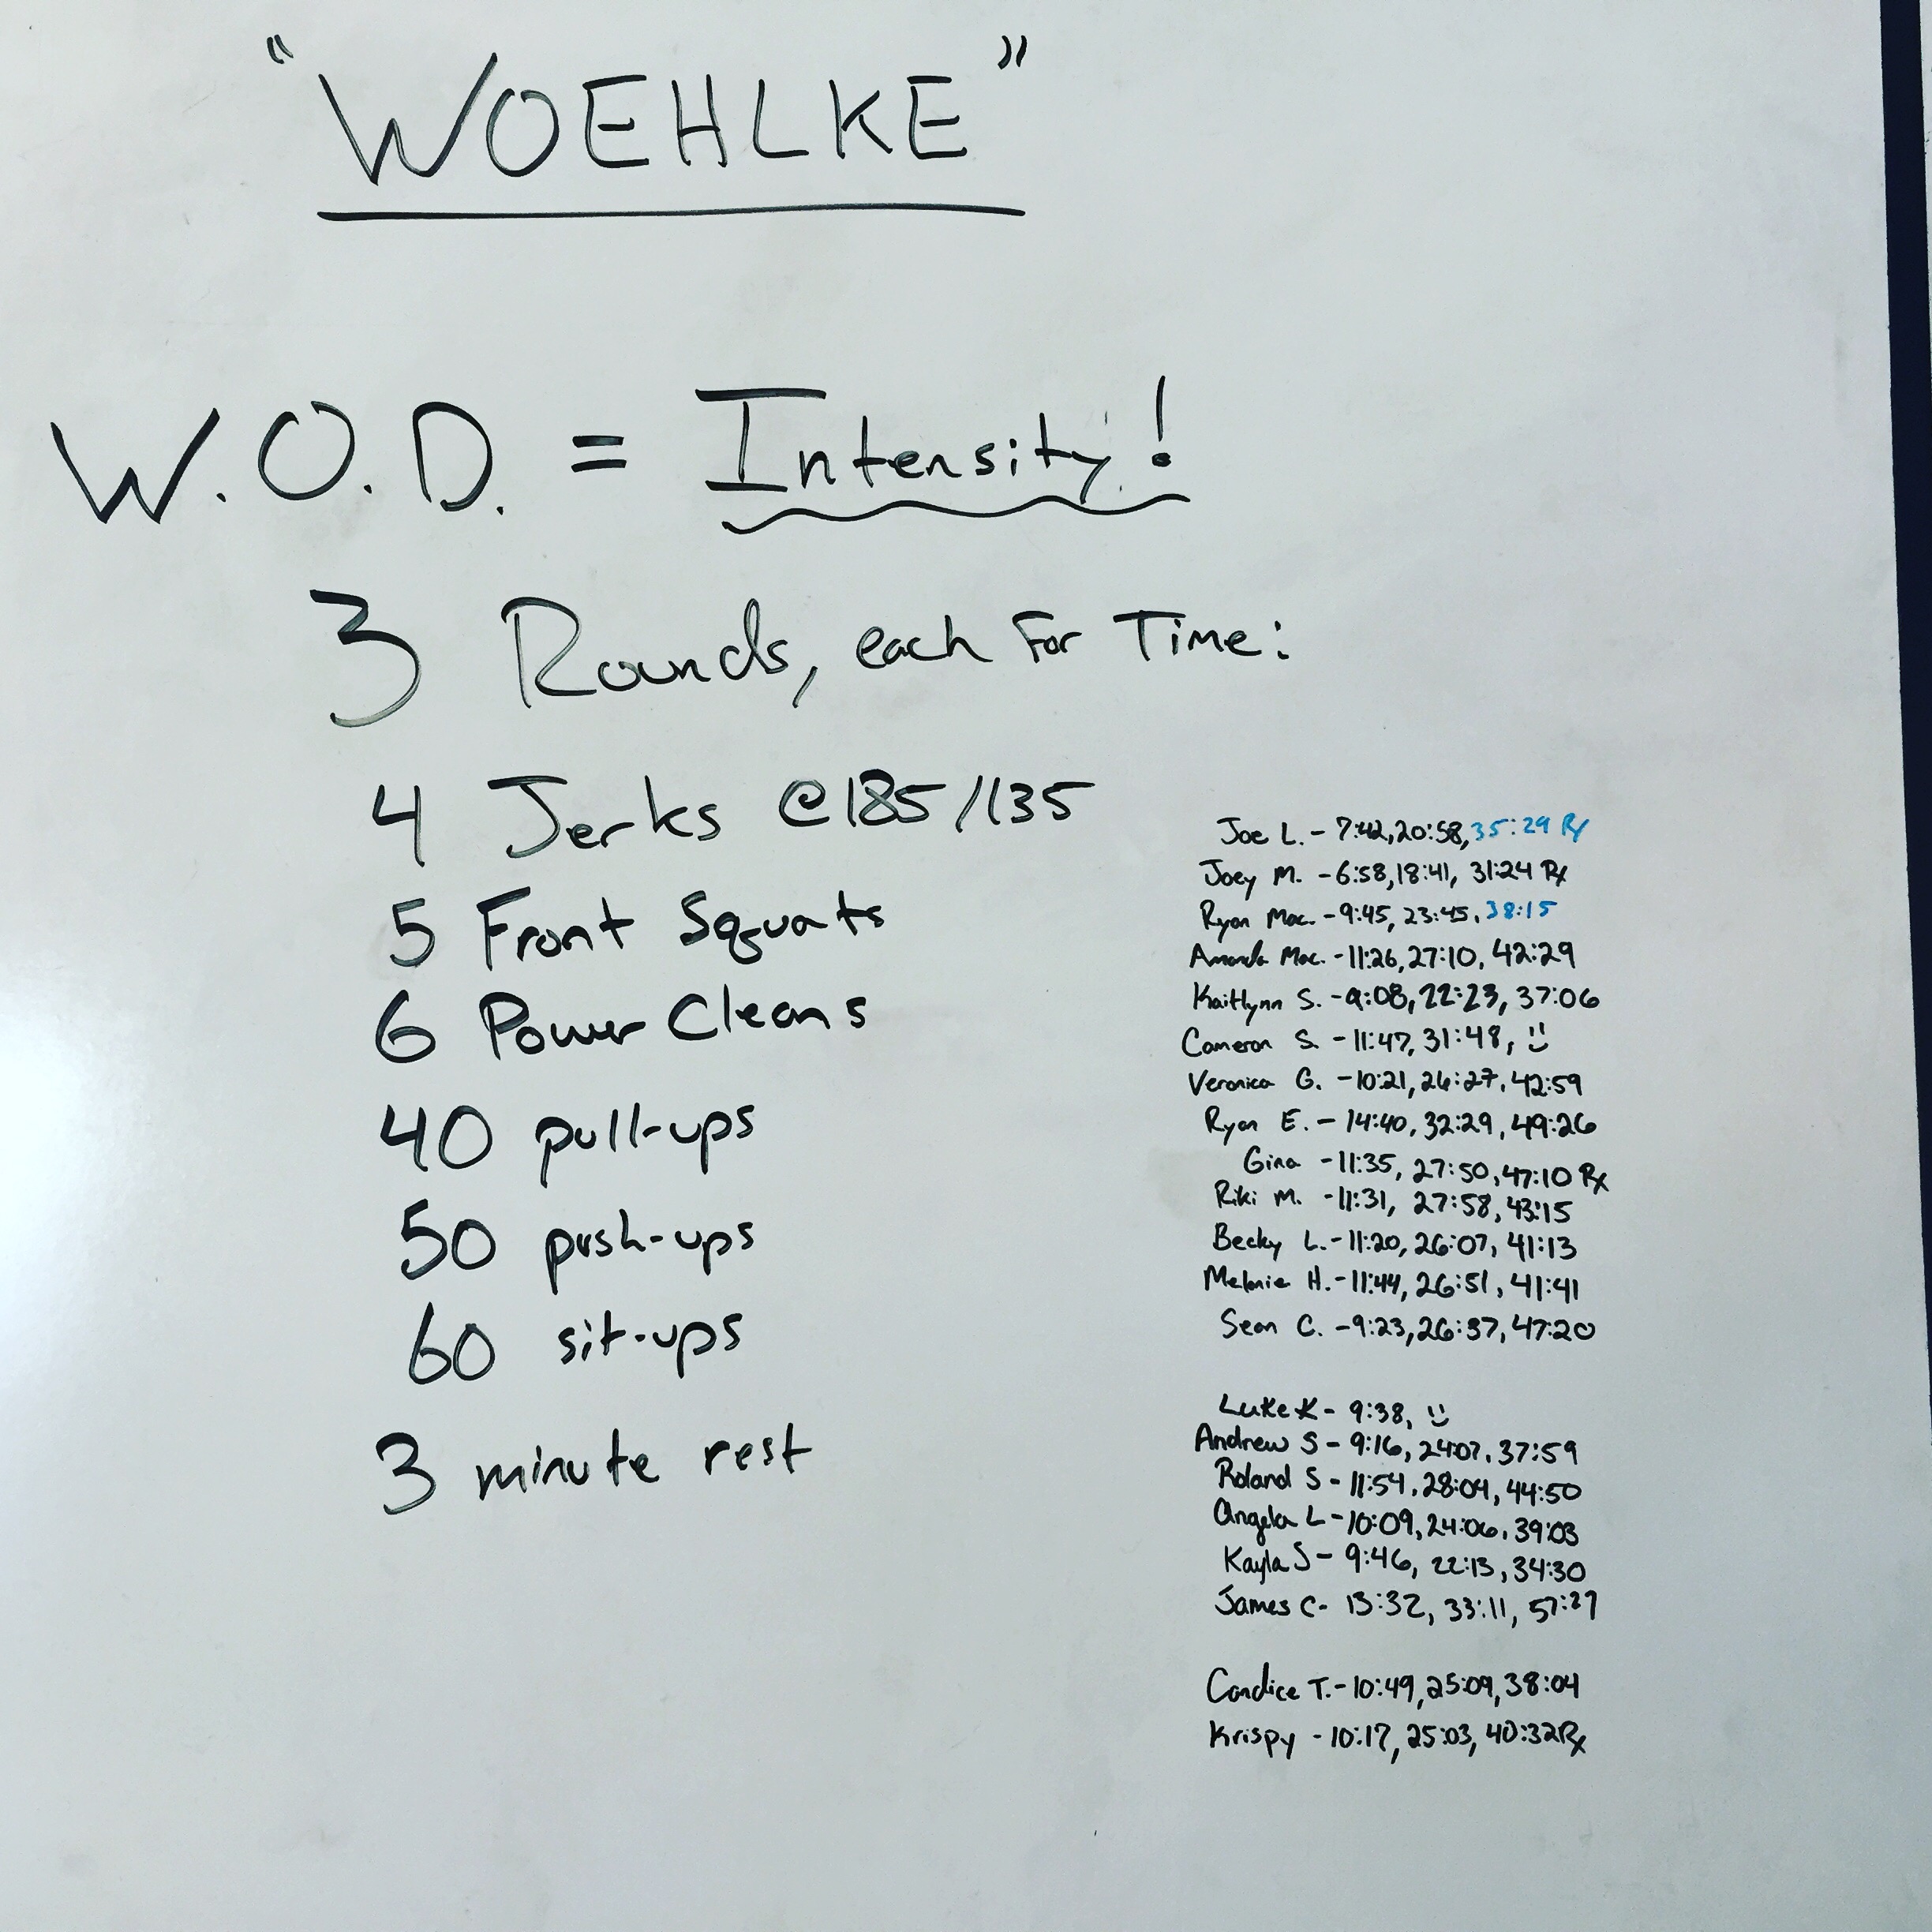 "WOEHLKE"
W.O.D. = Intensity!
3 Rounds, each For Time:
4 Jerks @185/135
5 Front Squats
6 Power Cleans
40 pull-ups
50 push-ups
60 sit-ups
3 minute rest
Joe L. - 7:42, 20:58, 35:29 Rx
Joey M. - 6:58, 18:41, 31:24 Rx
Ryan Mac. - 9:45, 23:45, 38:15
Amanda Mac. - 11:26, 27:10, 42:29
Kaitlynn S. - 9:08, 22:23, 37:06
Cameron S. - 11:47, 31:48, :)
Veronica G. - 10:21, 26:27, 42:59
Ryan E. - 14:40, 32:29, 49:26
Gina - 11:35, 27:50, 47:10 Rx
Riki M. - 11:31, 27:58, 43:15
Becky L. - 11:20, 26:07, 41:13
Melanie H. - 11:44, 26:51, 41:41
Sean C. - 9:23, 26:37, 47:20
Luke K - 9:38, :)
Andrew S - 9:16, 24:07, 37:59
Roland S - 11:54, 28:04, 44:50
Angela L - 10:09, 24:06, 39:03
Kayla S - 9:46, 22:13, 34:30
James C - 13:32, 33:11, 57:27
Candice T. - 10:49, 25:09, 38:04
Krispy - 10:17, 25:03, 40:32 Rx